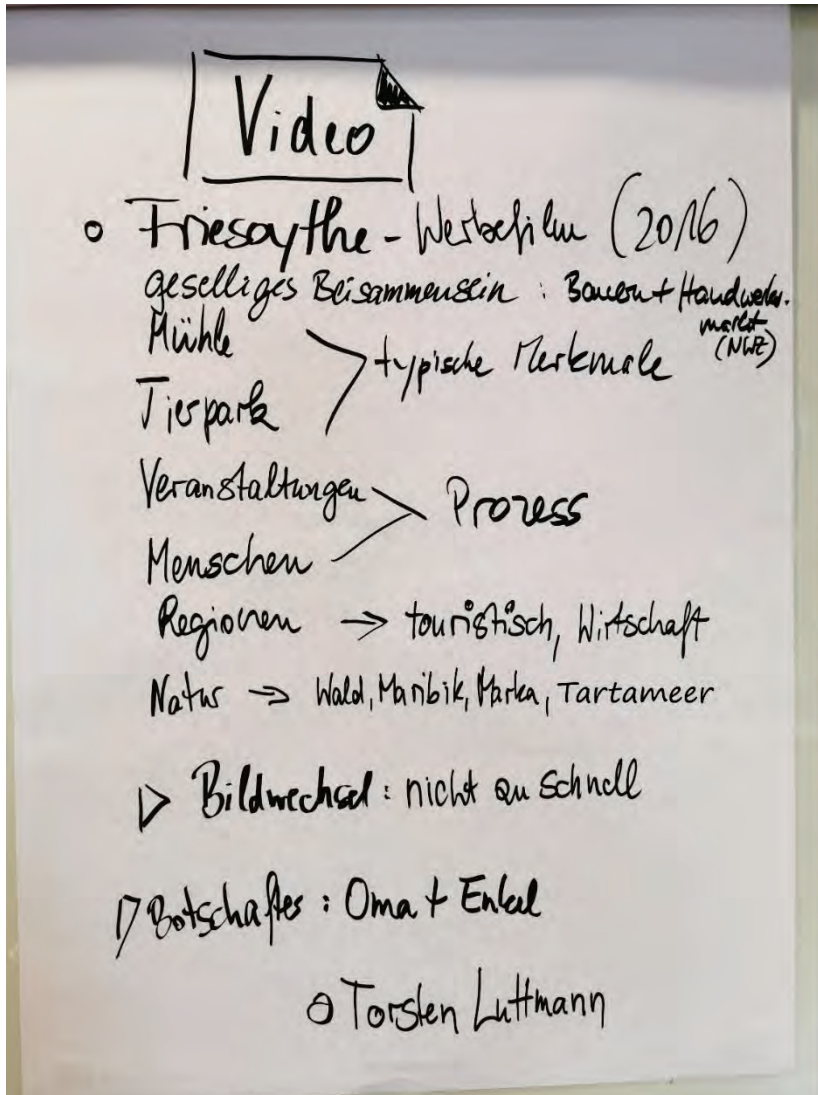 Video
Friesoythe - Werbefilm (2016)
geselliges Beisammensein : Bauern + Handwerker.
markt
(NWZ)
Mühle
typische Merkmale
Tierpark
Veranstaltungen
Prozess
Menschen
Regionen → touristisch, Wirtschaft
Natur → Wald, Maribik, Marka, Tartameer
▷ Bildwechsel : nicht zu schnell
▷ Botschafter : Oma + Enkel
o Torsten Luttmann